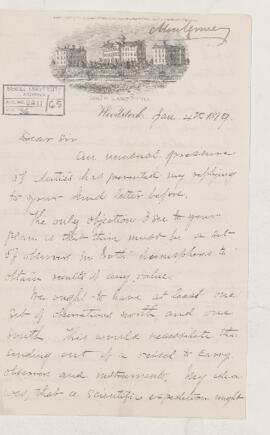 McGill University
Archives
Acc. No. 2211 / 65
Woodstock. Jan. 4th 1879.
Dear Sir
An unusual pressure
of duties has prevented my replying
to your kind letter before.
The only objection I see to your
plan is that there must be a set
of observers in both hemispheres to
obtain results of any value.
We ought to have at least one
set of observations north and one
South. This would necessitate the
sending out of a vessel to carry
observers and instruments. My idea
was, that a scientific expedition might